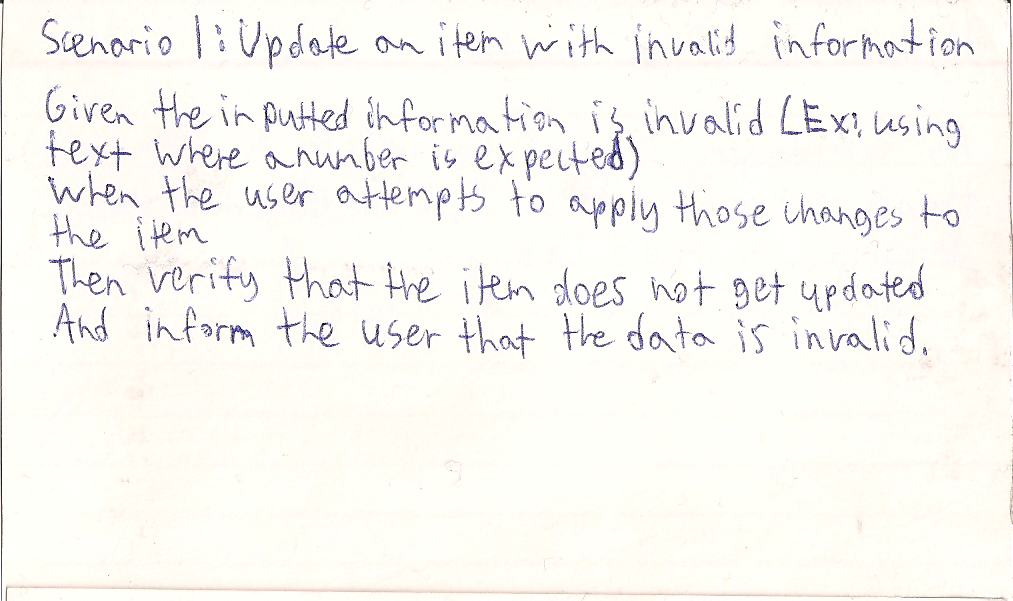 Scenario 1: Update an item with invalid information
Given the inputted information is invalid (Ex: using
text where a number is expected)
When the user attempts to apply those changes to
the item
Then verify that the item does not get updated
And inform the user that the data is invalid.